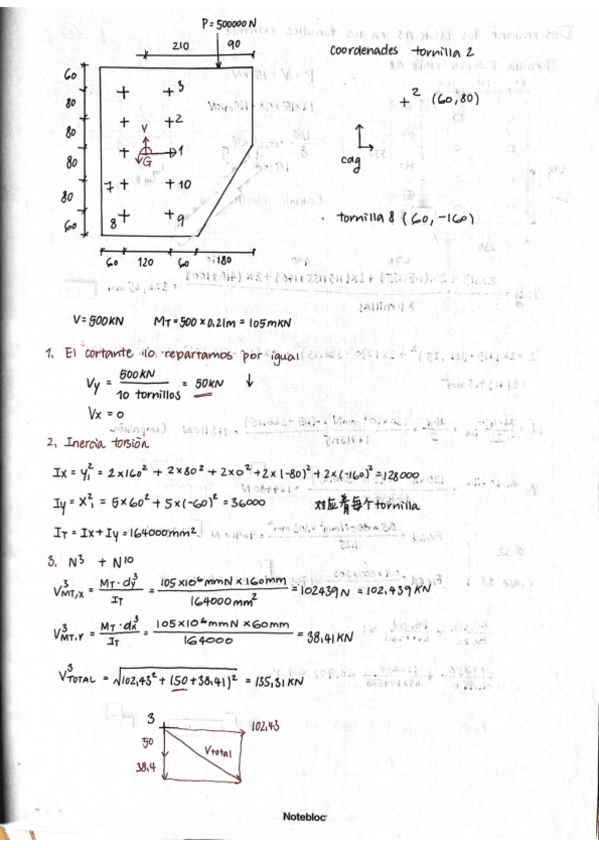 P = 500000 N
210 90
coordenades tornilla 2
60
3
+² (60,80)
80
2
80
V
1
G
cag
80
7 10
80
tornilla 8 (60, -160)
8 9
60
60 120 60 180
V = 500KN MT = 500 × 0.21m = 105 mKN
1. El cortante llo repartamos por igual
Vy = 500KN / 10 tornillos = 50KN ↓
Vx = 0
2. Inercia torsión
Ix = y₁² = 2×160² + 2×80² + 2×0² + 2×(-80)² + 2×(-160)² = 128000
Iy = x₁² = 5×60² + 5×(-60)² = 36000 对应着每个tornilla
IT = Ix + Iy = 164000mm²
3. N³ + N¹⁰
V³MT,X = MT · dy³ / IT = 105×10⁶mmN × 160mm / 164000mm² = 102439 N = 102,439 KN
V³MT,Y = MT · dx³ / IT = 105×10⁶mmN × 60mm / 164000 = 38,41 KN
V³TOTAL = √102,43² + (50 + 38,41)² = 135,31 KN
3 102,43
50
Vtotal
38,4
Notebloc